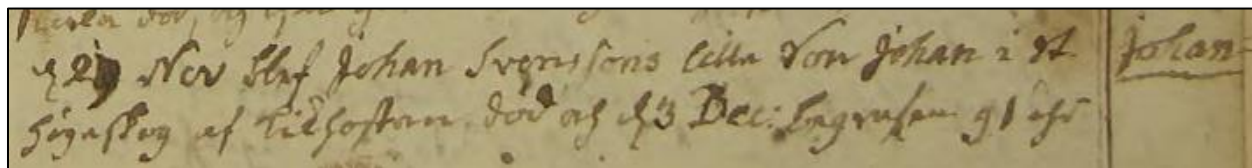 död, och
d 29 Nov blef Johan Svenssons lilla Son Johan i St
högaskog af Kikhostan död och d 3 Dec: begrafen 9 1 ahr
Johan